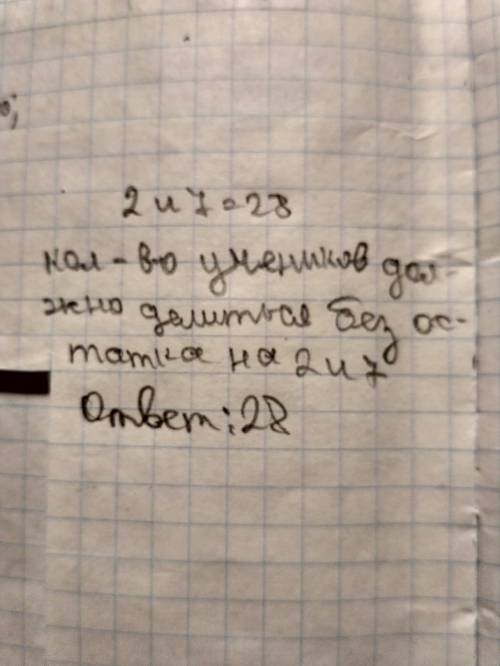 2 и 7 = 28
кол-во учеников дол-
жно делиться без ос-
татка на 2 и 7
Ответ: 28